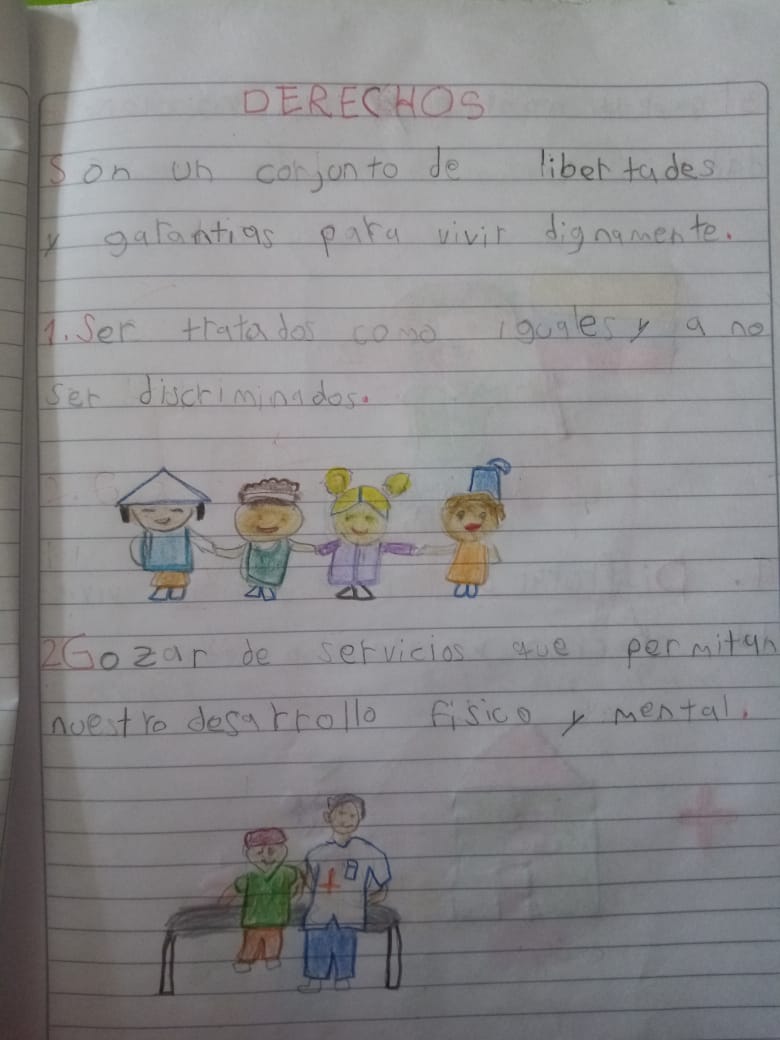 DERECHOS
Son un conjunto de libertades
y garantias para vivir dignamente.
1. Ser tratados como iguales y a no
ser discriminados.
2 Gozar de servicios que permitan
nuestro desarrollo físico y mental.